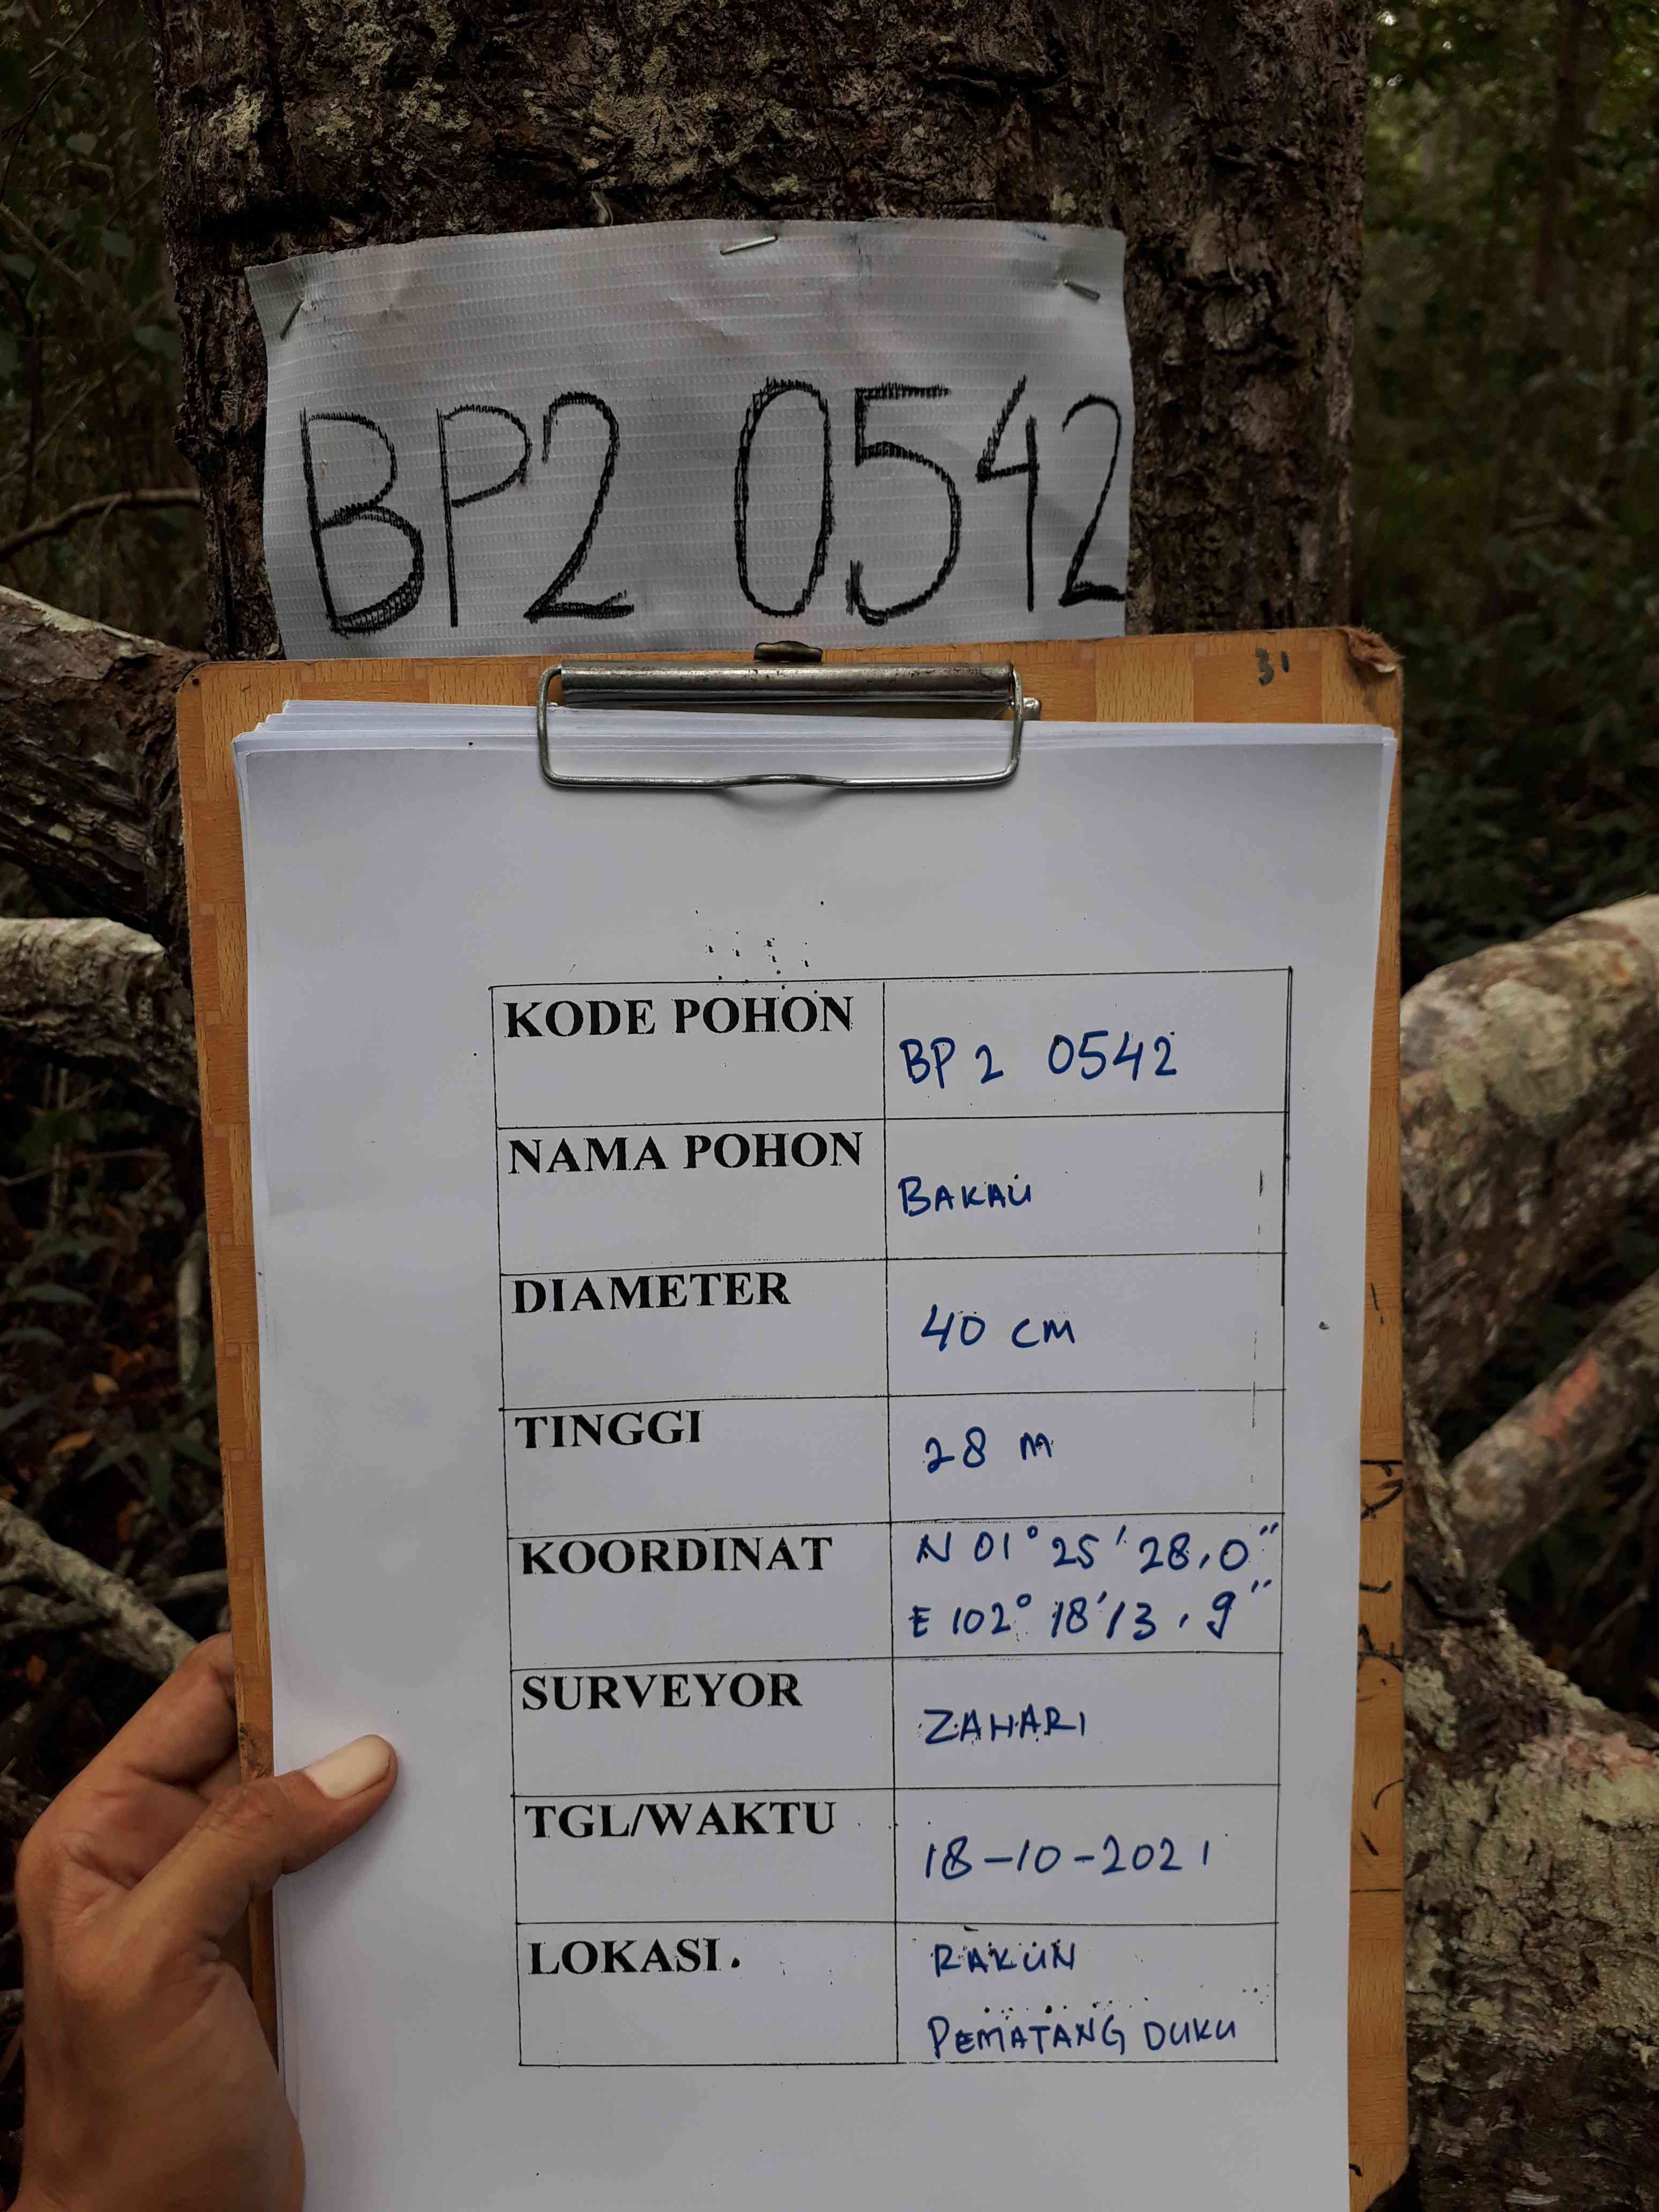 BP2 0542
31
KODE POHON
BP2 0542
NAMA POHON
BAKAU
DIAMETER
40 CM
TINGGI
28 M
KOORDINAT
N 01° 25' 28,0"
E 102° 18' 13,9"
SURVEYOR
ZAHARI
TGL/WAKTU
18-10-2021
LOKASI.
RAKUN
PEMATANG DUKU